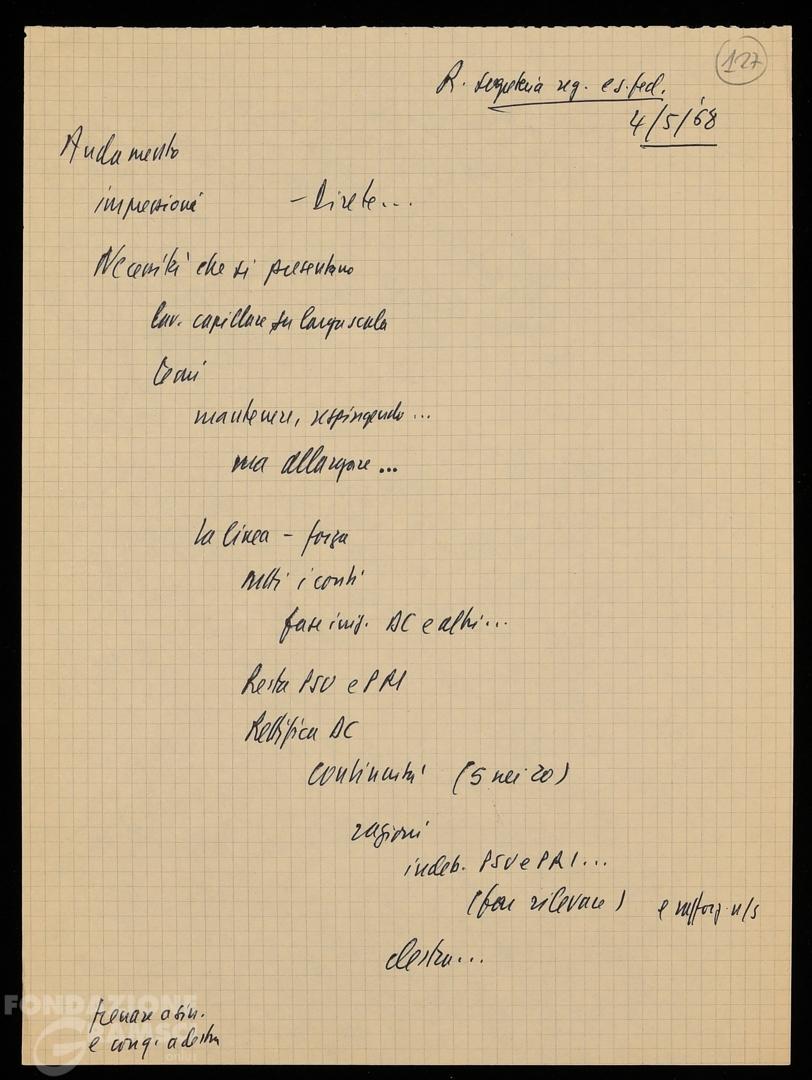 127
R. segreteria reg. e s. fed.
4/5/'68
Andamento
impressioni - Direte...
Necessità che si presentano
lav. capillare su larga scala
Temi
mantenere, respingendo...
ma allargare...
La linea - forza
tutti i conti
fase iniz. DC e altri...
Resta PSU e PRI
Rettifica DC
Continuità (5 nei 20)
ragioni
indeb. PSU e PRI...
(far rilevare) e rafforz. n/s
destra...
frenare a sin.
e cong. a destra
FONDAZIONE
GRAMSCI
ONLUS